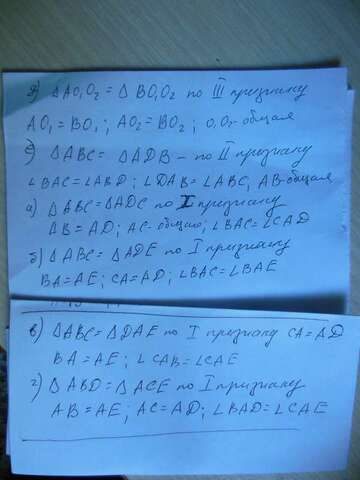 д) ΔAO₁O₂ = ΔBO₁O₂ по III признаку
AO₁ = BO₁; AO₂ = BO₂; O₁O₂ - общая
е) ΔABC = ΔADB - по II признаку
∠BAC = ∠ABD; ∠DAB = ∠ABC, AB-общая
а) ΔABC = ΔADC по I признаку
AB = AD; AC - общая; ∠BAC = ∠CAD
б) ΔABC = ΔADE по I признаку
BA = AE; CA = AD; ∠BAC = ∠BAE
в) ΔABC = ΔDAE по I признаку CA = AD
BA = AE; ∠CAB = ∠CAE
г) ΔABD = ΔACE по I признаку
AB = AE; AC = AD; ∠BAD = ∠CAE